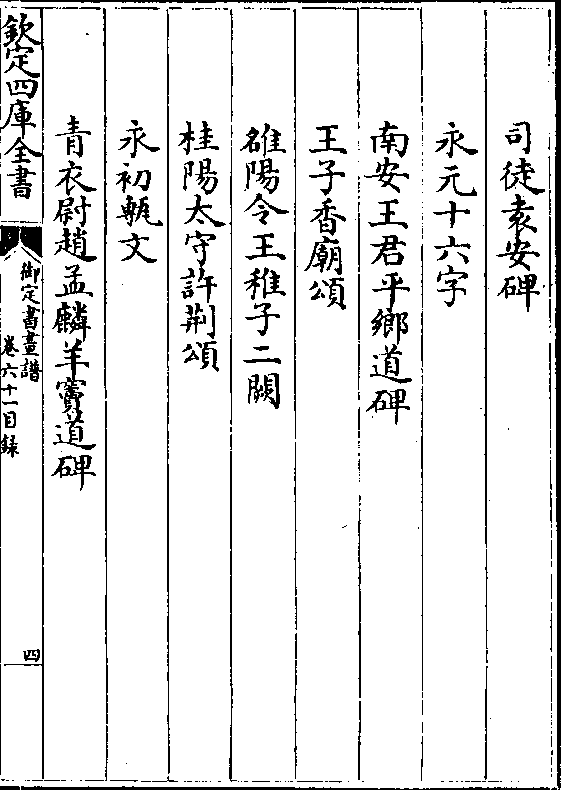 司徒袁安碑
永元十六字
南安王君平鄉道碑
王子香廟頌
雒陽令王稚子二闕
桂陽太守許荆頌
永初甎文
青衣尉趙孟麟羊竇道碑
欽定四庫全書
御定書畫譜
卷六十一目録
四